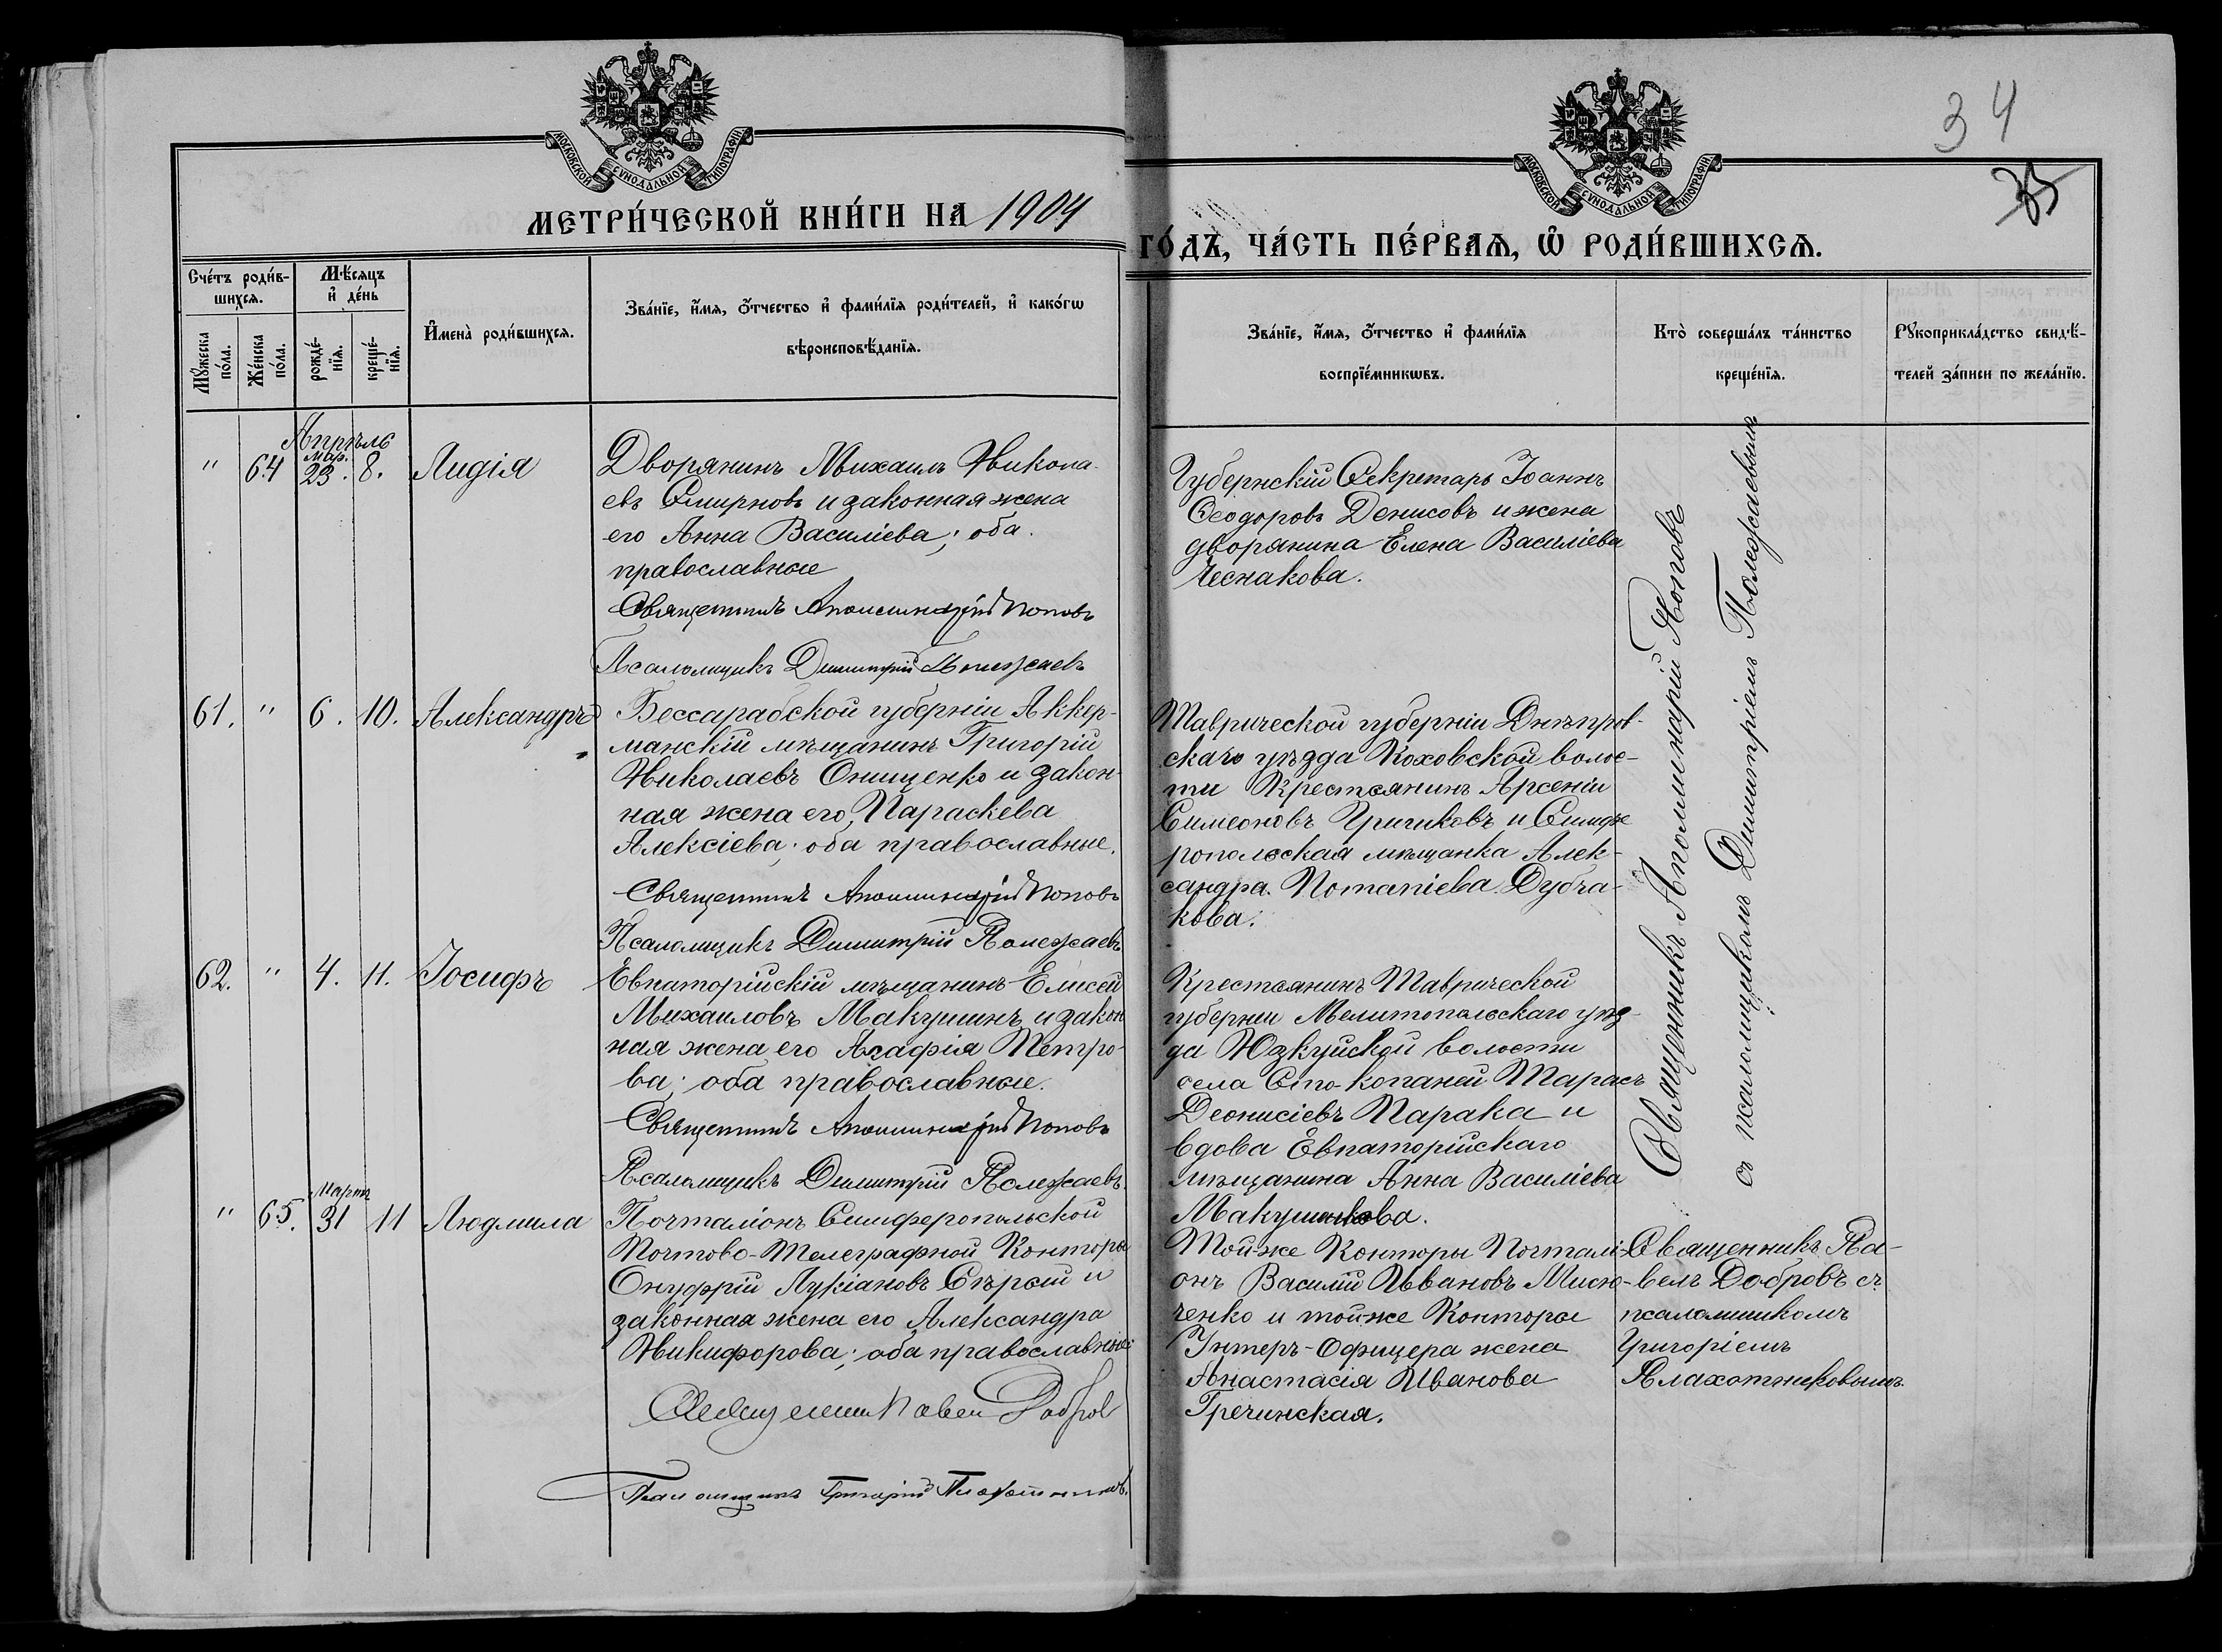 34
35
МОСКОВСКОЙ СУНОДАЛЬНОЙ ТИПОГРАФІИ
МОСКОВСКОЙ СУНОДАЛЬНОЙ ТИПОГРАФІИ
МЕТРИ́ЧЕСКОЙ КНИ́ГИ НА 1904
ГО́ДЪ, ЧА́СТЬ ПЕ́РВАѦ, Ѡ РОДИ́ВШИХСѦ.
Сче́тъ роди́в-
шихсѧ.
Мꙋ́жеска по́ла.
Же́нска по́ла.
Мѣ́сяцъ
и҆ де́нь
рожде́-
нїѧ.
креще́-
нїѧ.
И҆мена̀ роди́вшихсѧ.
Зва́нїе, и҆́мѧ, ѻ҆́тчество и҆ фами́лїѧ роди́телей, и҆ како́гѡ
вѣроисповѣ́данїѧ.
Зва́нїе, и҆́мѧ, ѻ҆́тчество и҆ фами́лїѧ
воспрїе́мникѡвъ.
Кто̀ соверша́лъ та́инство
креще́нїѧ.
Рꙋкоприкла́дство свидѣ́-
телей за́писи по жела́нїю.
Апрѣль
" 64 мар. 23. 8. Лидія
Дворянинъ Михаилъ Никола-
евъ Смирновъ и законная жена
его Анна Василіева; оба
православные
Священникъ Аполлинарій Поповъ
Псаломщикъ Димитрій Полежаевъ
Губернскій Секретарь Іоаннъ
Ѳеодоровъ Денисовъ и жена
дворянина Елена Василіева
Чеснакова.
61. " 6. 10. Александръ
Бессарабской губерніи Аккер-
манскій мѣщанинъ Григорій
Николаевъ Онищенко и закон-
ная жена его Параскева
Алексіева; оба православные.
Священникъ Аполлинарій Поповъ
Псаломщикъ Димитрій Полежаевъ
Таврической губерніи Днѣпров-
скаго уѣзда Каховской волос-
ти Крестьянинъ Арсеній
Симеоновъ и Симфе
ропольская мѣщанка Алек-
сандра Потапіева Дубча-
кова.
62. " 4. 11. Іосифъ
Евпаторійскій мѣщанинъ Елисей
Михаиловъ Макушинъ и закон
ная жена его Агафія Петро-
ва; оба православные.
Священникъ Аполлинарій Поповъ
Псаломщикъ Димитрій Полежаевъ.
Крестьянинъ Таврической
губерніи Мелитопольскаго уѣз-
да Юзкуйской волости
села Сто-копаней Тарасъ
Деонисіевъ Парака и
вдова Евпаторійскаго
мѣщанина Анна Василіева
Макушинова.
Священникъ Аполлинарій Поповъ
съ псаломщикомъ Димитріемъ Полежаевымъ
" 65. Март 31 11 Людмила
Почталіонъ Симферопольской
Почтово-Телеграфной Конторы
Онуфрій Лукіановъ Сѣрый и
законная жена его Александра
Никифорова; оба православные
Священникъ Павелъ Добровъ
Псаломщикъ Григорій Плахотниковъ.
Той-же Конторы Почталі-
онъ Василій Ивановъ Мисю-
ченко и той-же Конторы
Унтеръ-Офицера жена
Анастасія Иванова
Гречинская.
Священникъ Па-
велъ Добровъ съ
псаломщикомъ
Григоріемъ
Плахотниковымъ.